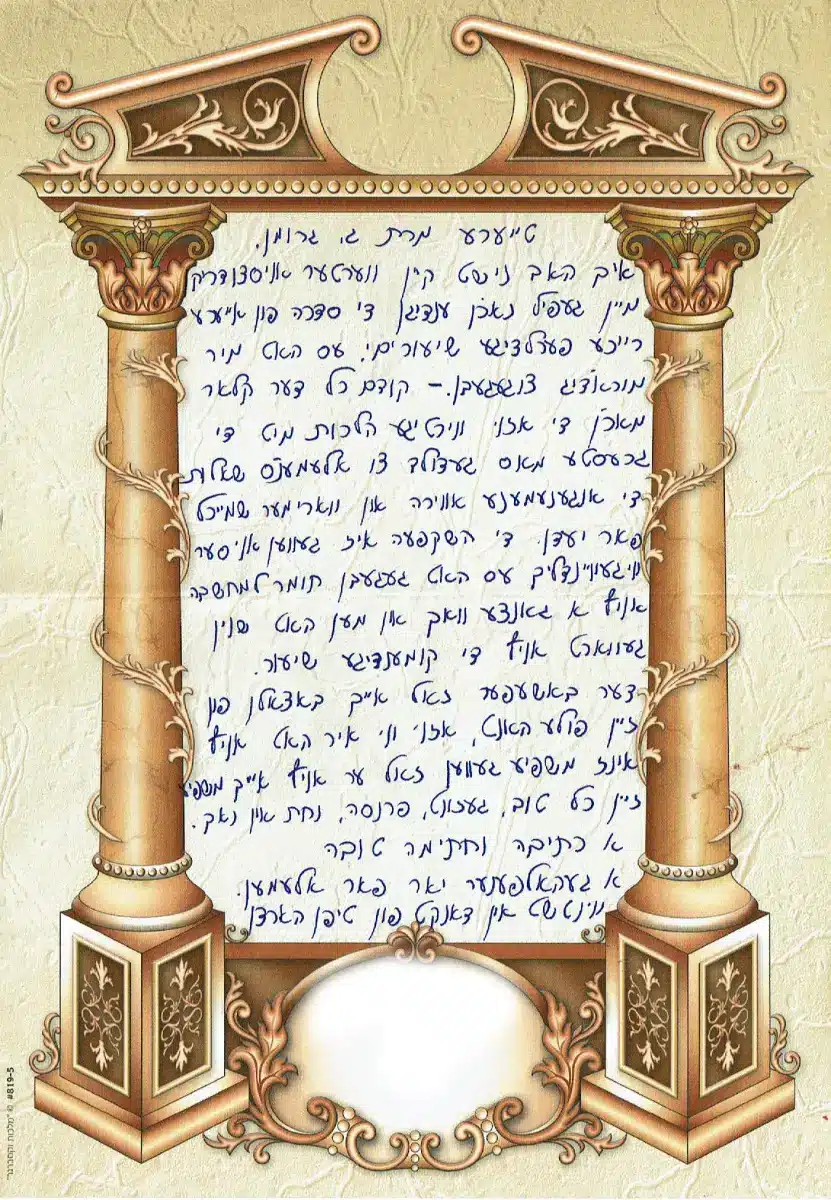 טייערע מרת ג. גרומן.
איך האב נישט קיין ווערטער אויסצודרוק
מיין געפיל נאכן ענדיגן די סדרה פון אייערע
רייכע פערלדיגע שיעורים. עס האט מיר
מוראדיג צוגעגעבן. – קודם כל דער קלאר
מאכן די אזוי וויכטיגע הלכות מיט די
גרעסטע מאס געדולד צו אלעמענס שאלות
די אנגענעמענע אווירה און ווארימער שמייכל
פאר יעדן. די השקפה איז געווען אויסער
ווייגעוויינדליך עס האט געגעבן חומר למחשבה
אויף א גאנצע וואך און מען האט שוין
געווארט אויף די קומענדיגע שיעור.
דער באשעפער זאל אייך באצאלן פון
זיין פולע האנט, אזוי ווי איר האט אויף
אונז משפיע געווען זאל ער אויף אייך משפיע
זיין כל טוב, געזונט, פרנסה, נחת און נאך.
א כתיבה וחתימה טובה
א געהאלפענער יאר פאר אלעמען.
ווינטשט און דאנקט פון טיפן הארצן
#819-5